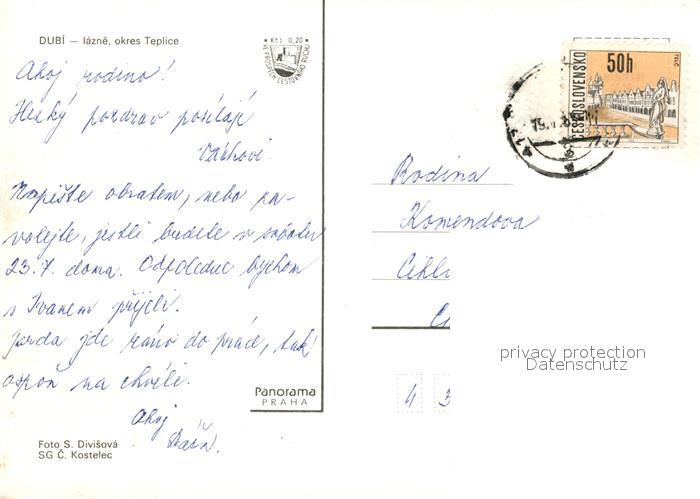 DUBÍ — lázně, okres Teplice
Kčs 0,20
VE PROSPĚCH CESTOVNÍHO RUCHU
Ahoj rodino!
Hezký pozdrav posílají
Váchovi.
Napište obratem, nebo za-
volejte, jestli budete v sobotu
23.7. doma. Odpoledne bychom
s Ivanem přijeli.
Jarda jde ráno do práce, tak
aspoň na chvíli.
Ahoj
Foto S. Divišová
SG Č. Kostelec
Panorama
PRAHA
ČESKOSLOVENSKO
50h
TELČ
Rodina
Komendova
Cihl
4 3
privacy protection
Datenschutz